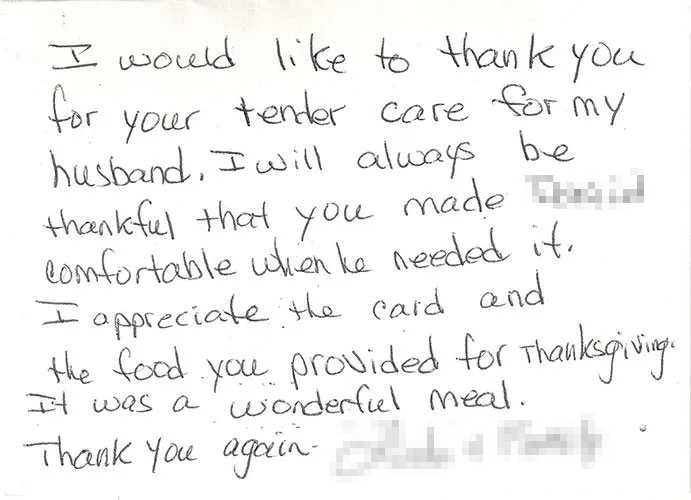 I would like to thank you
for your tender care for my
husband. I will always be
thankful that you made
comfortable when he needed it.
I appreciate the card and
the food you provided for Thanksgiving.
It was a wonderful meal.
Thank you again.